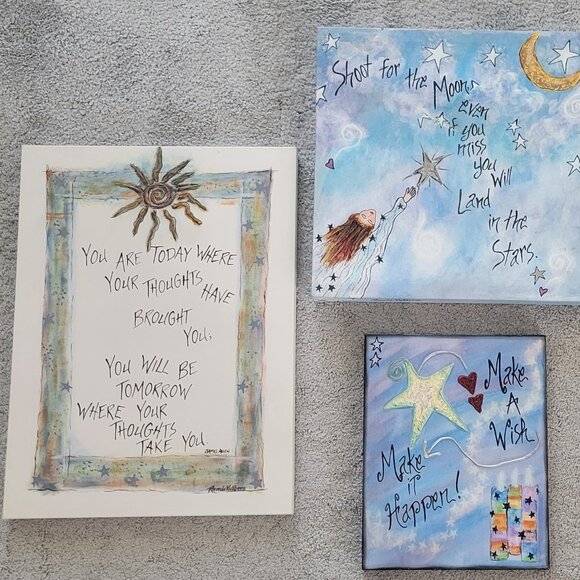 YOU ARE TODAY WHERE
YOUR THOUGHTS HAVE
BROUGHT
YOU,
YOU WILL BE
TOMORROW
WHERE YOUR
THOUGHTS
TAKE YOU.
JAMES ALLEN
Shoot for the Moon,
even
if you
miss
you
Will
Land
in the
Stars.
Make
A
Wish
Make
it
Happen!